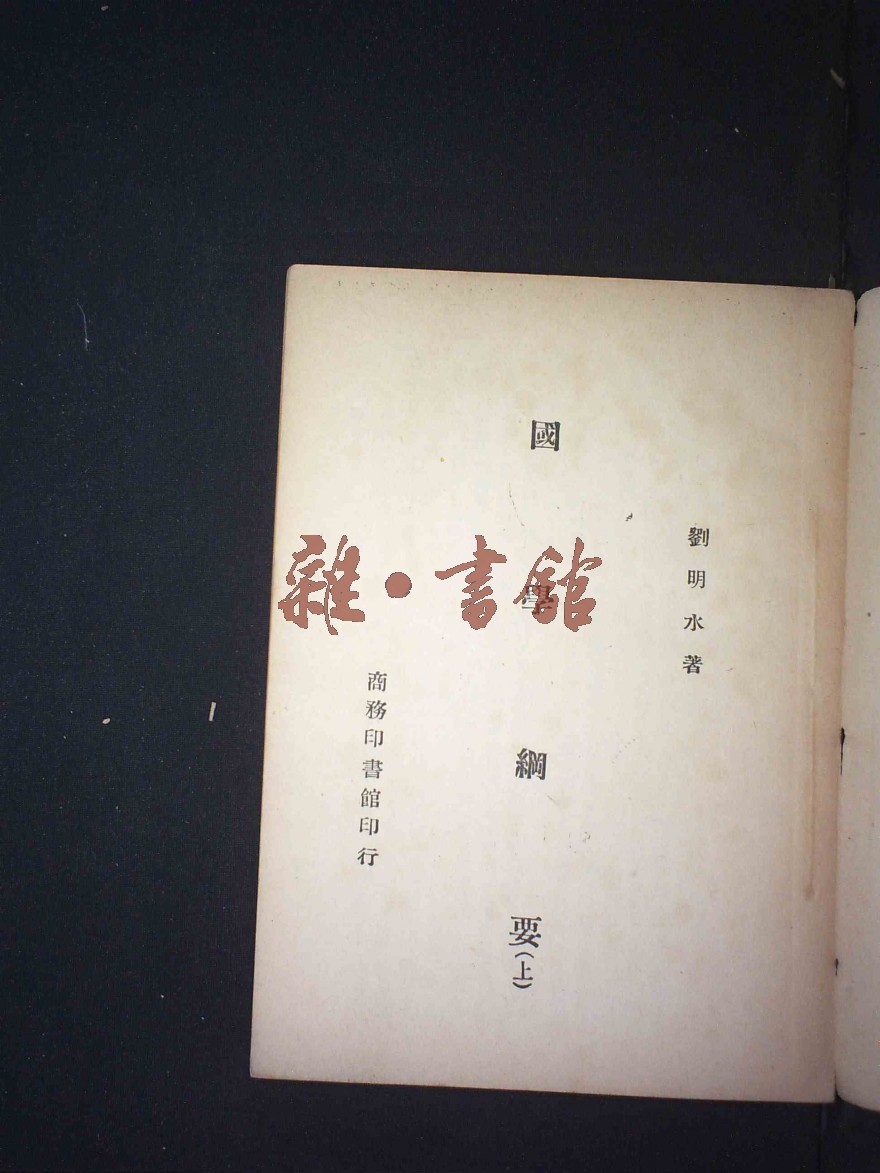 劉明水著
國學綱要(上)
商務印書館印行
雜·書館